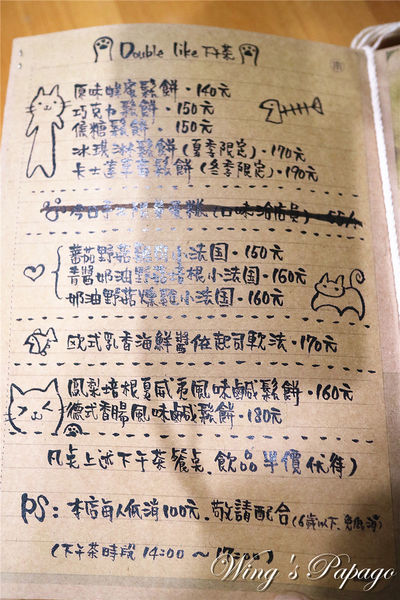 Double like 下午茶
原味蜂蜜鬆餅・140元
巧克力鬆餅・150元
焦糖鬆餅・150元
冰琪淋鬆餅(夏季限定)・170元
卡士達草莓鬆餅(冬季限定)・170元
(口味洽店員)
蕃茄野菇 小法国・150元
青醬奶油野菇培根小法国・160元
奶油野菇燻雞小法国・160元
欧式乳香海鮮醬佐起司軟法・170元
鳳梨培根夏威夷風味鹹鬆餅・160元
德式香腸風味鹹鬆餅・180元
凡桌上述下午茶餐点,飲品半價优待)
PS:本店每人低消100元,敬請配合(6歲以下免低消)
(下午茶時段 14:00～17:00)
Wing's Papago